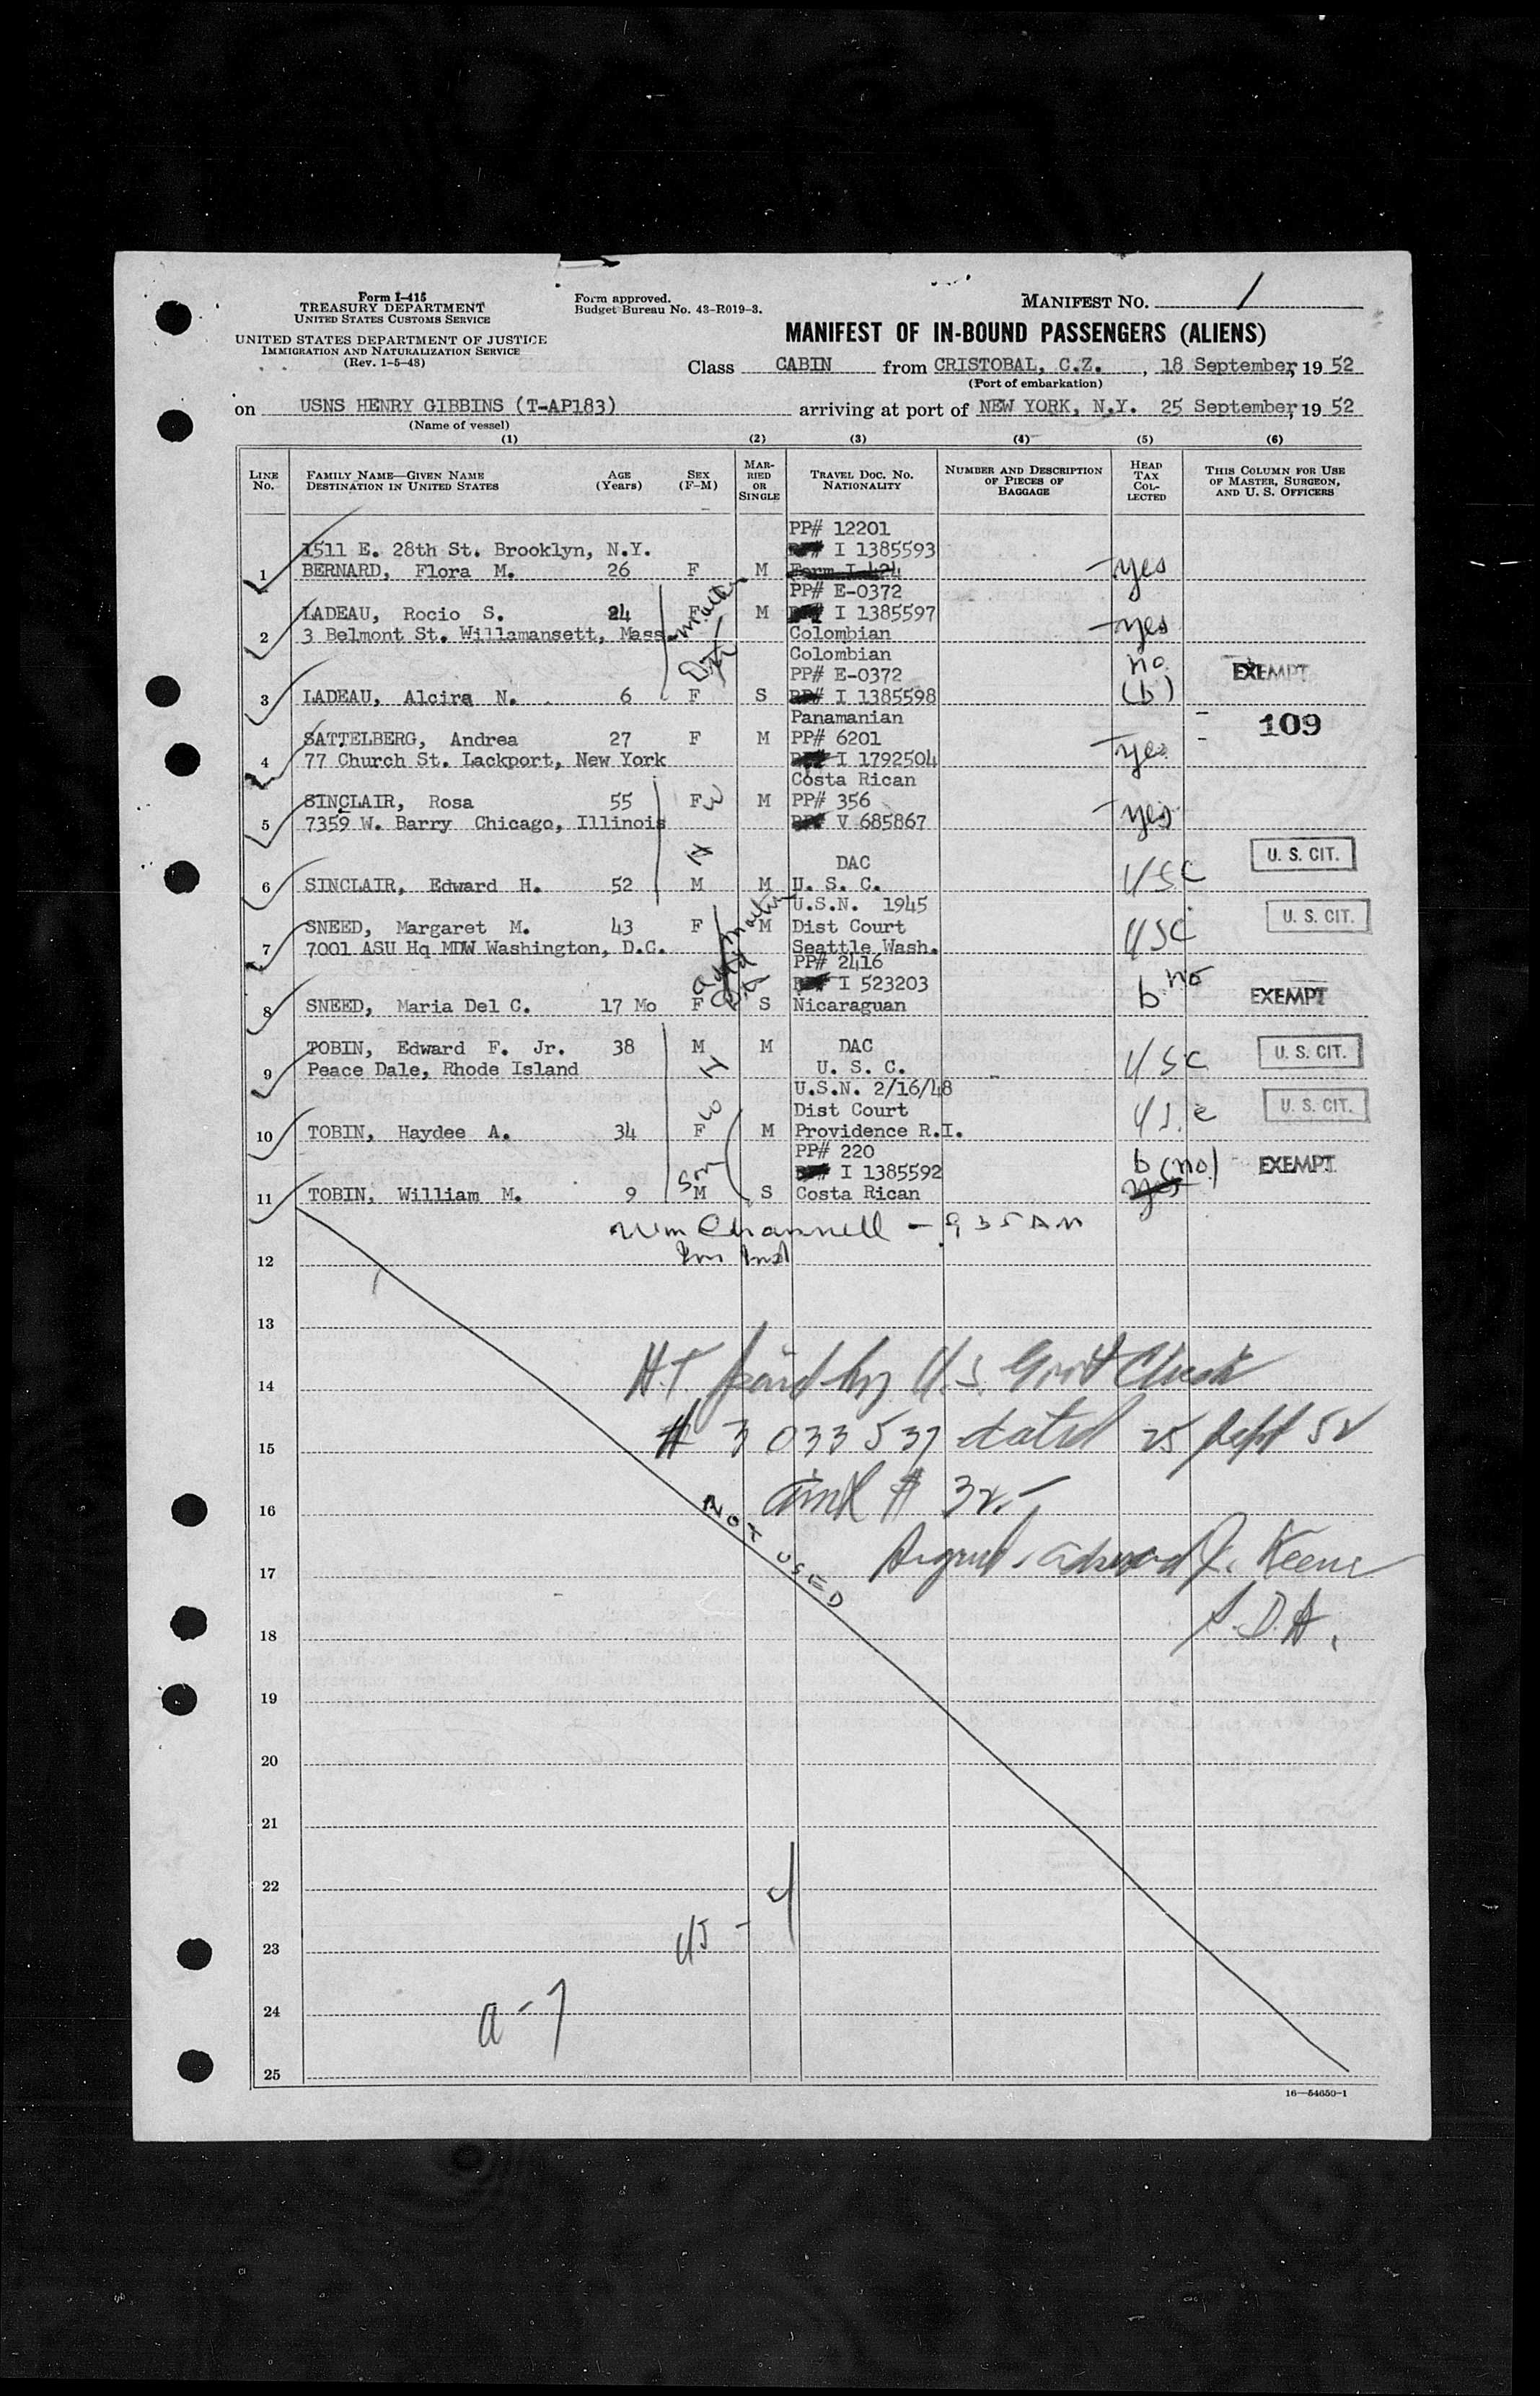 Form I-415
TREASURY DEPARTMENT
UNITED STATES CUSTOMS SERVICE
UNITED STATES DEPARTMENT OF JUSTICE
IMMIGRATION AND NATURALIZATION SERVICE
(Rev. 1-5-48)
Form approved.
Budget Bureau No. 43-R019-3.
MANIFEST NO. 1
MANIFEST OF IN-BOUND PASSENGERS (ALIENS)
Class CABIN from CRISTOBAL, C.Z., 18 September, 19 52
(Port of embarkation)
on USNS HENRY GIBBINS (T-AP183) arriving at port of NEW YORK, N.Y. 25 September, 19 52
(Name of vessel)
(1) (2) (3) (4) (5) (6)
LINE No. FAMILY NAME—GIVEN NAME DESTINATION IN UNITED STATES AGE (Years) SEX (F-M) MARRIED OR SINGLE TRAVEL DOC. NO. NATIONALITY NUMBER AND DESCRIPTION OF PIECES OF BAGGAGE HEAD TAX COLLECTED THIS COLUMN FOR USE OF MASTER, SURGEON, AND U. S. OFFICERS
PP# 12201
1511 E. 28th St. Brooklyn, N.Y. I 1385593
1 BERNARD, Flora M. 26 F M Form I 424 yes
PP# E-0372
LADEAU, Rocio S. 24 F M I 1385597
2 3 Belmont St. Willamansett, Mass. Colombian yes
Colombian no
PP# E-0372 EXEMPT
3 LADEAU, Alcira N. 6 F S I 1385598 (b)
Panamanian 109
SATTELBERG, Andrea 27 F M PP# 6201
4 77 Church St. Lackport, New York I 1792504 yes
Costa Rican
SINCLAIR, Rosa 55 F W M PP# 356
5 7359 W. Barry Chicago, Illinois V 685867 yes
DAC U. S. CIT.
H
6 SINCLAIR, Edward H. 52 M M U. S. C. USC
U.S.N. 1945
SNEED, Margaret M. 43 F M Dist Court U. S. CIT.
7 7001 ASU Hq MDW Washington, D.C. Seattle Wash. USC
PP# 2416
I 523203 no
8 SNEED, Maria Del C. 17 Mo F S Nicaraguan b EXEMPT
TOBIN, Edward F. Jr. 38 M M DAC U. S. CIT.
9 Peace Dale, Rhode Island H U. S. C. USC
U.S.N. 2/16/48
W Dist Court U. S. CIT.
10 TOBIN, Haydee A. 34 F M Providence R.I. USC
PP# 220
Son I 1385592 b (no) EXEMPT
11 TOBIN, William M. 9 M S Costa Rican yes
Wm Channell - 935 AM
12
13
H.T. paid by U.S. Govt Check
14
# 3033537 dated 25 Sept 52
15
16
NOT USED
17
Keene
18
19
20
21
22
US - 4
23
a - 7
24
25
16—54650-1